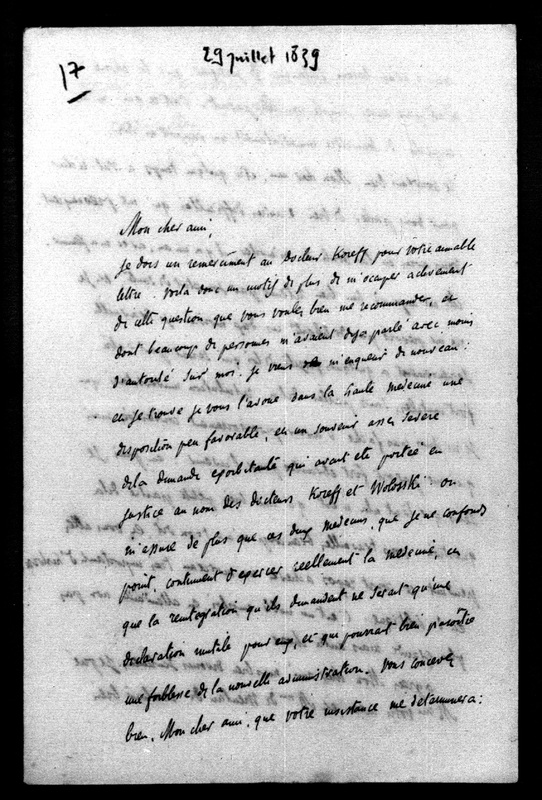 29 juillet 1839
17
Mon cher ami,
je dois un remerciment au Docteur Koreff pour votre aimable
lettre. voila donc un motif de plus de m'occuper activement
de cette question que vous voulez bien me recommander, et
dont beaucoup de personnes m'avaient deja parlé avec moins
d'autorité sur moi. je viens de m'enquerir de nouveau :
et je trouve je vous l'avoue dans la haute medecine une
disposition peu favorable, et un souvenir assez severe
de la demande exorbitante qui avait eté portée en
justice au nom des docteurs Koreff et Woloski. on
m'assure de plus que ces deux medecins, que je ne confonds
point, continuent d'exercer reellement la medecine, et
que la reintegration qu'ils demandent ne serait qu'une
declaration inutile pour eux, et qui pourrait bien paroitre
une foiblesse de la nouvelle administration. Vous concevez
bien, Mon cher ami, que votre insistance me determinera :